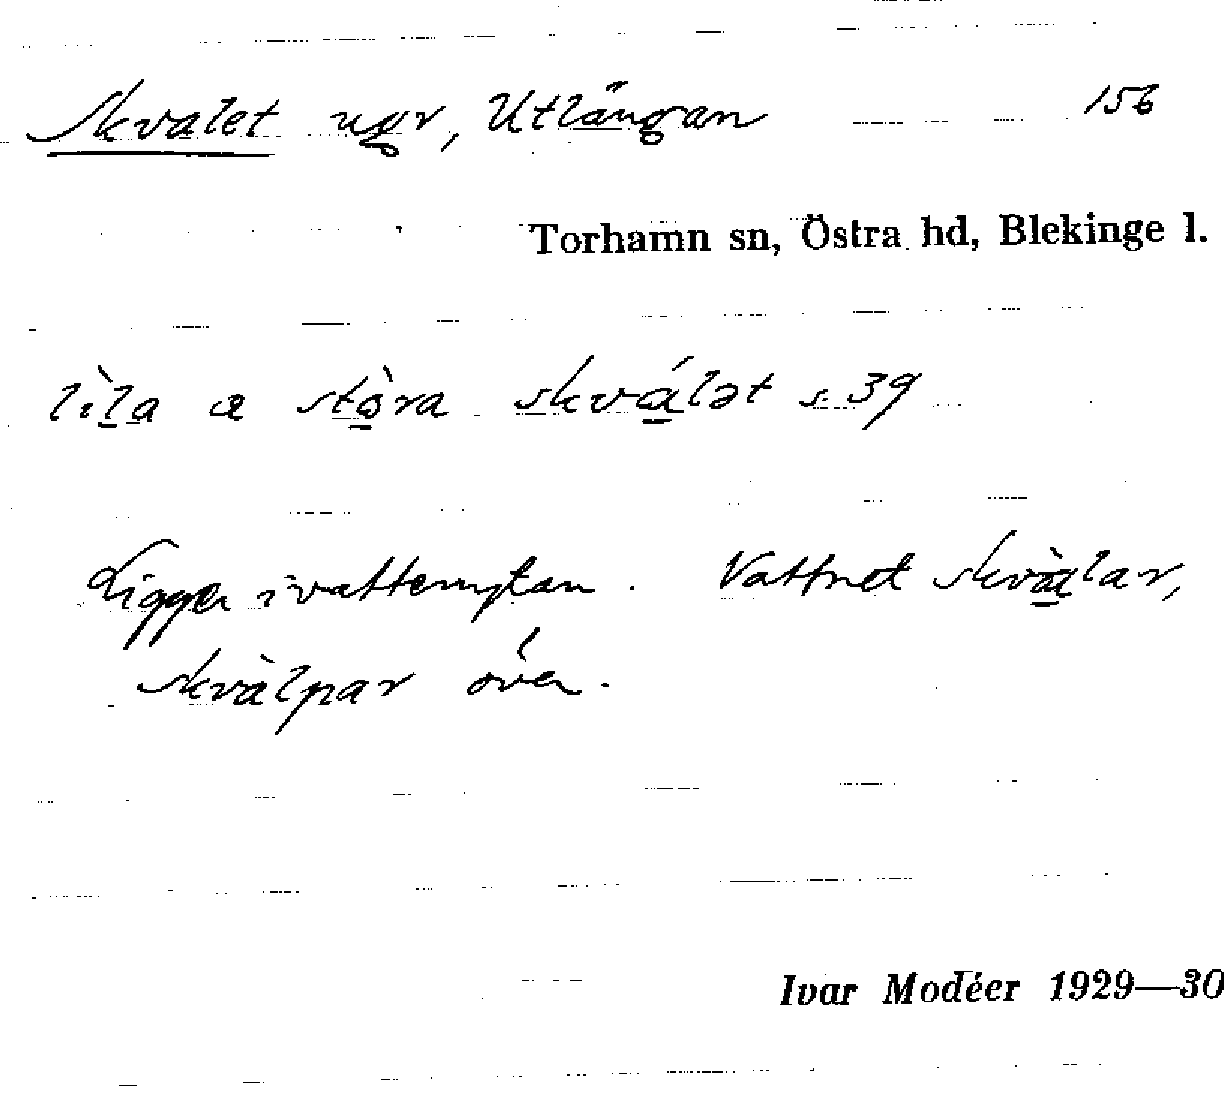 Skvalet ugr, Utlängan 156
Torhamn sn, Östra hd, Blekinge l.
lìla a stòra skválət s. 39
Ligger i vattenytan. Vattnet skvàlar,
skvàlpar över.
Ivar Modéer 1929—30